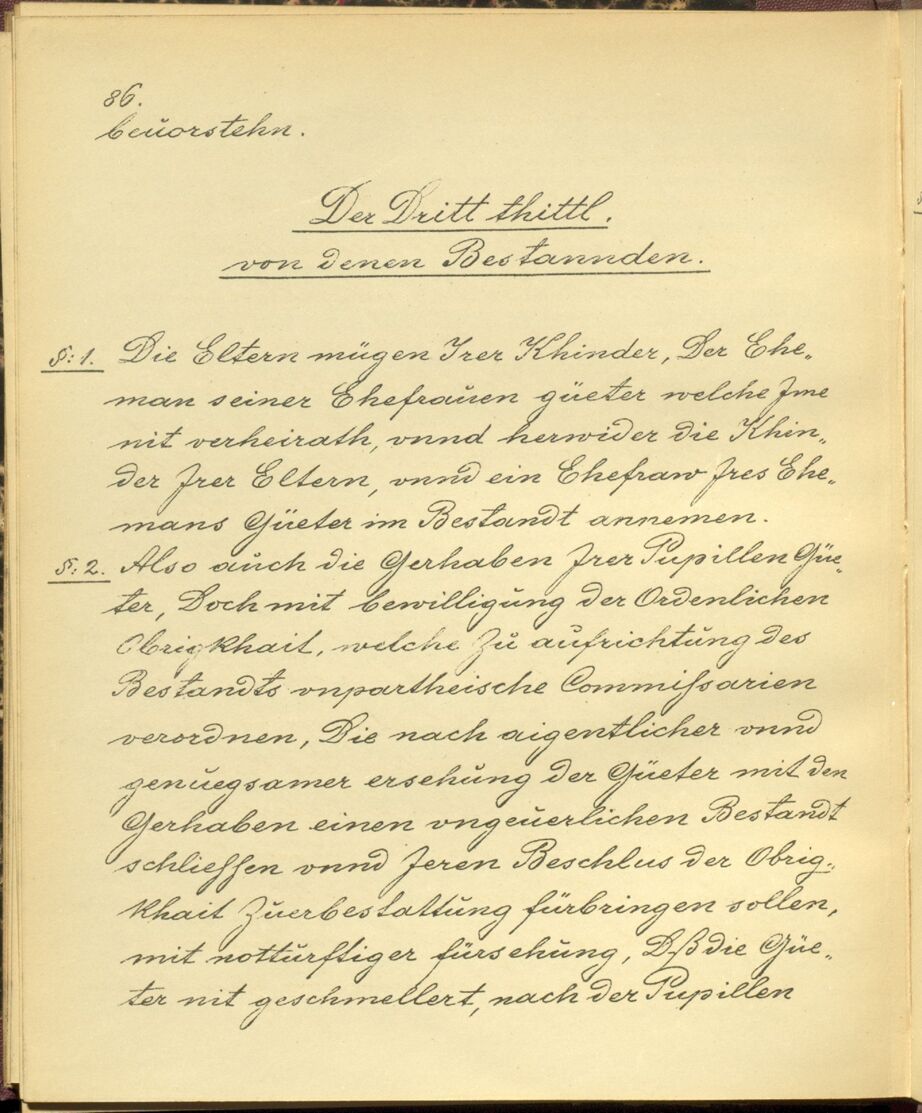 86.
beuorstehn.
Der Dritt thittl.
von denen Bestannden.
§: 1. Die Eltern mügen Irer Khinder, Der Ehe„
man seiner Ehefraŭen güeter welche Ime
nit verheirath, vnnd herwider die Khin„
der Irer Eltern, vnnd ein Ehefraw Ires Ehe„
mans Güeter im Bestandt annemen.
§: 2. Also aŭch die Gerhaben Irer Pupillen Güe„
ter, Doch mit bewilligŭng der Ordenlichen
Obrigkhait, welche Zŭ aŭfrichtŭng des
Bestandts vnpartheische Commissarien
verordnen, Die nach aigentlicher vnnd
genŭegsamer ersehŭng der Güeter mit den
Gerhaben einen vngeŭerlichen Bestandt
schliessen vnnd Ieren Beschlus der Obrig„
khait Zŭerbestattŭng fürbringen sollen,
mit nottŭrftiger fürsehŭng, Dß die Güe„
ter nit geschmellert, nach der Pupillen